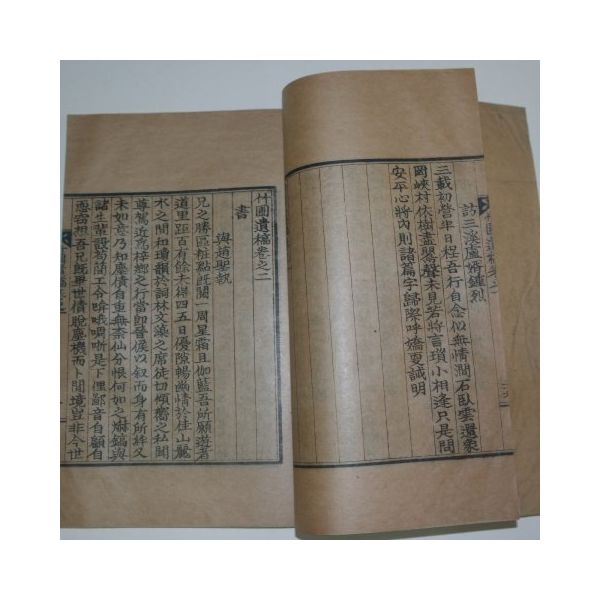 訪三溪盧婿鍾烈
三載初營半日程吾行自念似無情澗石臥雲還象
岡峽村依樹盡聞聲未見若將言瑣小相逢只是問
安平心將內則諸篇字歸際呼嬌更誠明
竹圃遺稿卷之二
書
與趙聖執
兄之勝區粧點旣閱一周星霜且伽藍吾所願遊者
道里距百有餘未得四五日優隙暢幽情於佳山麗
水之間和瓊韻於詞林文藻之席徒切傾嚮之私聞
尊駕近爲梓鄕之行當卽晉候以叙而身有所絆又
未如意乃知塵債自重無柰仙分恨何如之
諸生輩設荀簡工令哢哦嘲哳是下俚鄙音自顧自
恧竊想吾兄旣畢世債脫塵機而卜閒境豈非今世